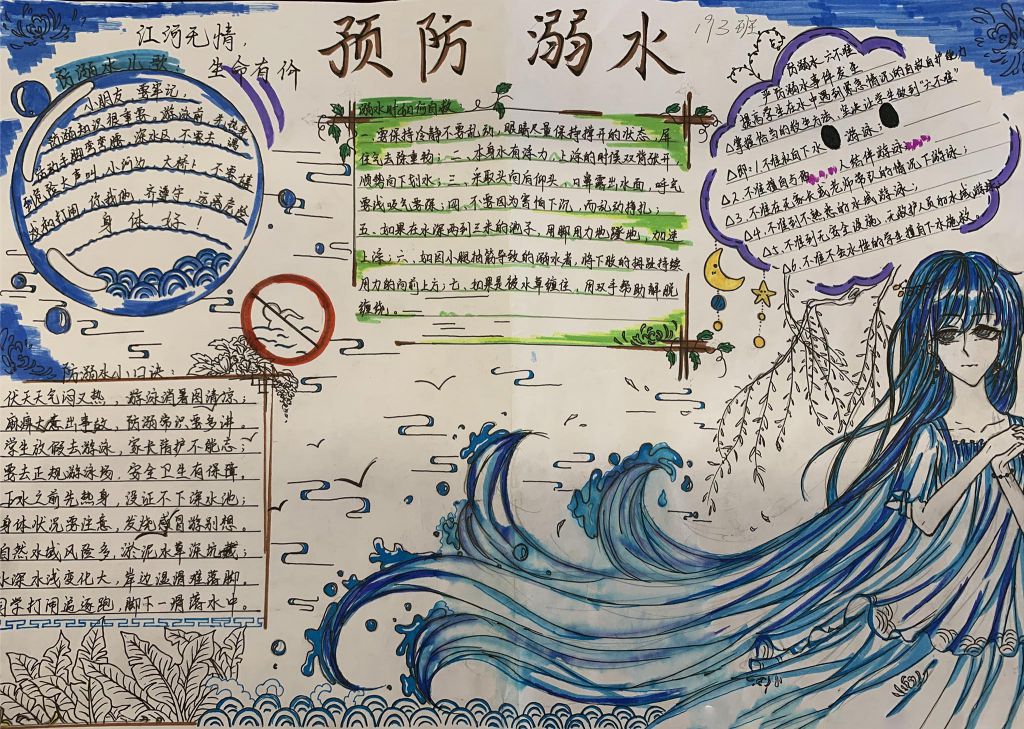 江河无情,
生命有价
预防溺水
193班
防溺水儿歌
小朋友 要牢记;
防溺知识很重要. 游泳前 先热身
活动手脚变变腰. 深水区 不要去. 遇
到危险大声叫. 小河边. 大桥上 不要槎
我和打闹 你我他 齐遵守 远离危险
身体好!
溺水时如何自救
一要保持冷静不要乱动,眼睛尽量保持撑开的状态,屏
住气去除重物;二、水身水有浮力,上浮的时候双臂张开
顺势向下划水;三、采取头向后仰头、口鼻露出水面,呼气
要浅吸气要深;四、不要因为害怕下沉,而乱动挣扎;
五、如果在水深两到三米的池子,用脚用力地蹬地,加速
上浮;六、如因小腿抽筋导致的溺水者,将下肢的拇趾持续
用力的向前上方;七、如果是被水草缠住,用双手帮助解脱
缠绕。
防溺水六不准
严防溺水事件发生
提高学生在水中遇到紧急情况的自救自护能力
△掌握恰当的救生方法,坚决让学生做到“六不准”
△即:1.不准私自下水 游泳;
△2.不准擅自与他 人结伴游泳
△3.不准在无家长或老师带队的情况下游泳;
△4.不准到不熟悉的水域游泳;
△5.不准到无安全设施、无救护人员的水域游泳
△6.不准不会水性的学生擅自下水施救。
防溺水小口诀:
伏天天气闷又热,游泳消暑图清凉;
麻痹大意出事故,防溺常识要多讲。
学生放假去游泳,家长陪护不能忘;
要去正规游泳场,安全卫生有保障。
下水之前先热身,没证不下深水池;
身体状况需注意,发烧感冒游别想。
自然水域风险多,淤泥水草深坑藏;
水深水浅变化大,岸边湿滑难落脚。
同学打闹追逐跑,脚下一滑落水中。